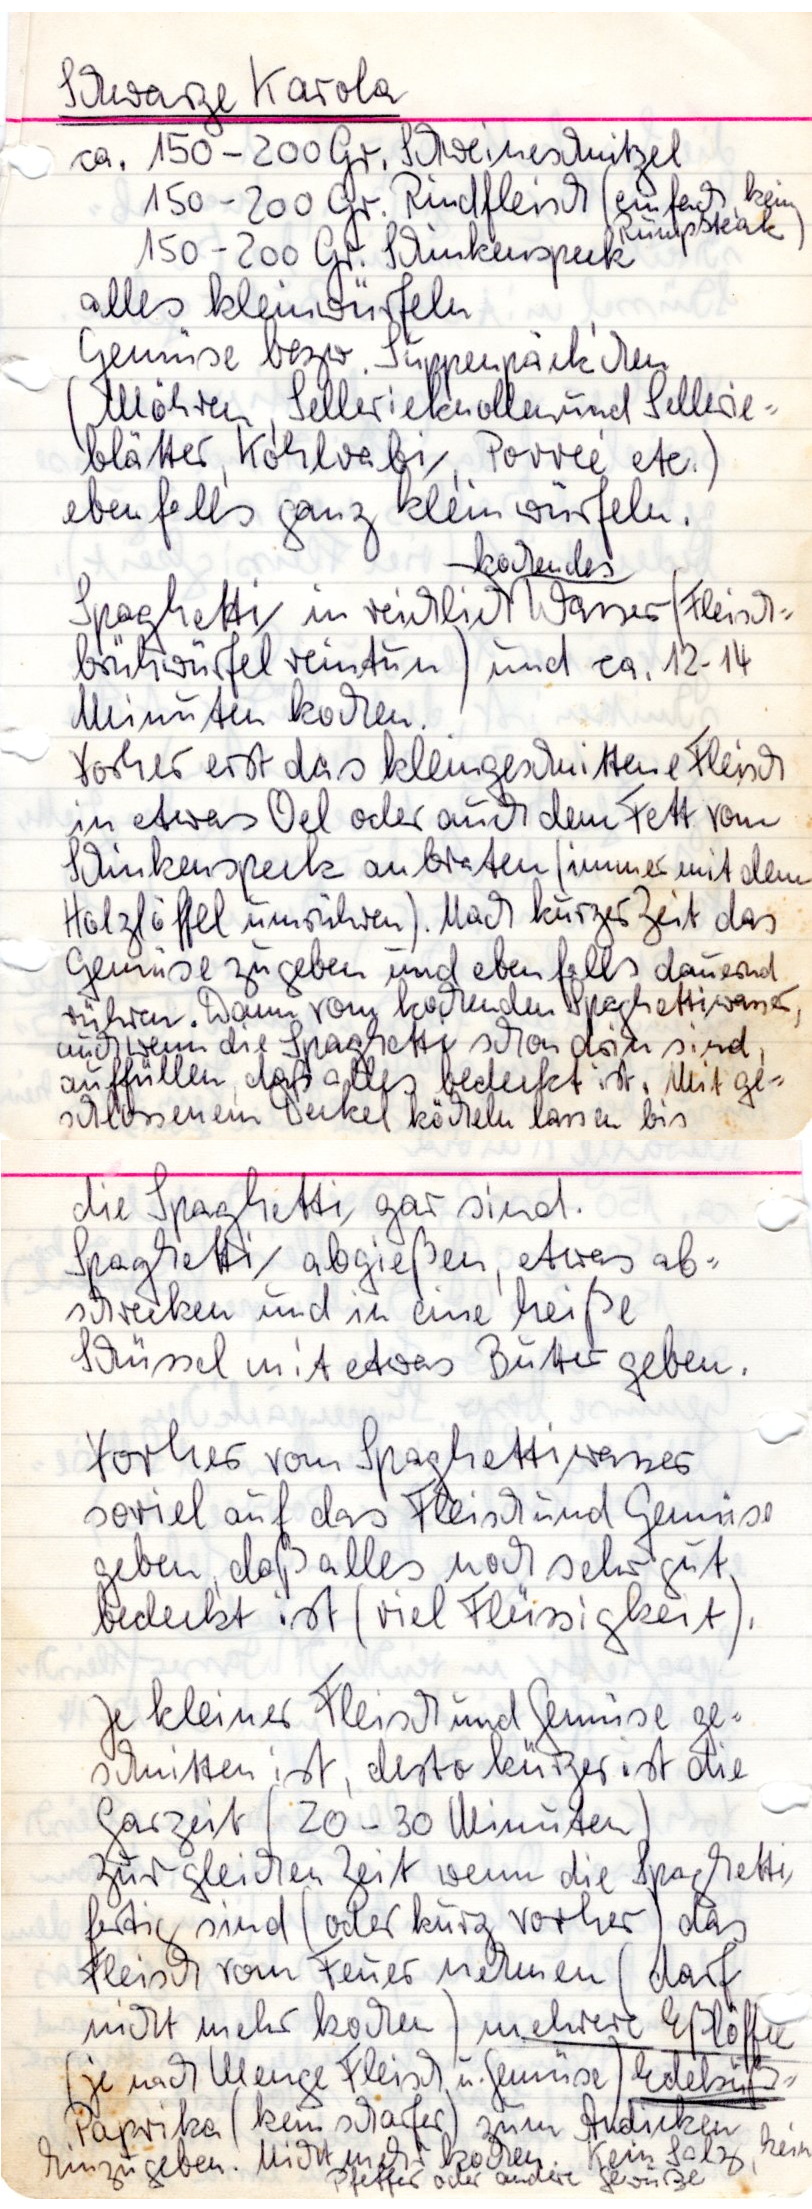 Schwarze Karola
ca. 150-200 Gr. Schweineschnitzel
150-200 Gr. Rindfleisch (einfach, kein
Rumpsteak)
150-200 Gr. Schinkenspeck
alles kleinwürfeln
Gemüse bezw. Suppenpäckchen
(Möhren, Sellerieknollen und Sellerie-
blätter, Kohlrabi, Porreé etc.)
ebenfalls ganz kleinwürfeln.
kochendes
Spaghetti in reichlich Wasser (Fleisch-
brühwürfel reintun) und ca. 12-14
Minuten kochen.
Vorher erst das kleingeschnittene Fleisch
in etwas Oel oder auch dem Fett vom
Schinkenspeck anbraten (immer mit dem
Holzlöffel umrühren). Nach kurzer Zeit das
Gemüse zugeben und ebenfalls dauernd
rühren. Dann vom kochenden Spaghettiwasser,
auch wenn die Spaghetti schon drin sind,
auffüllen, daß alles bedeckt ist. Mit ge-
schlossenem Deckel köcheln lassen bis
die Spaghetti gar sind.
Spaghetti abgießen, etwas ab-
schrecken und in eine heiße
Schüssel mit etwas Butter geben.
Vorher vom Spaghettiwasser
soviel auf das Fleisch und Gemüse
geben, daß alles noch sehr gut
bedeckt ist (viel Flüssigkeit).
Je kleiner Fleisch und Gemüse ge-
schnitten ist, desto kürzer ist die
Garzeit (20-30 Minuten)
Zur gleichen Zeit wenn die Spaghetti
fertig sind (oder kurz vorher) das
Fleisch vom Feuer nehmen (darf
nicht mehr kochen) mehrere Eßlöffel
(je nach Menge Fleisch u. Gemüse) Edelsüß-
Paprika (kein scharfer) zum Andicken
hinzugeben. Nicht mehr kochen. Kein Salz, kein
Pfeffer oder andere Gewürze